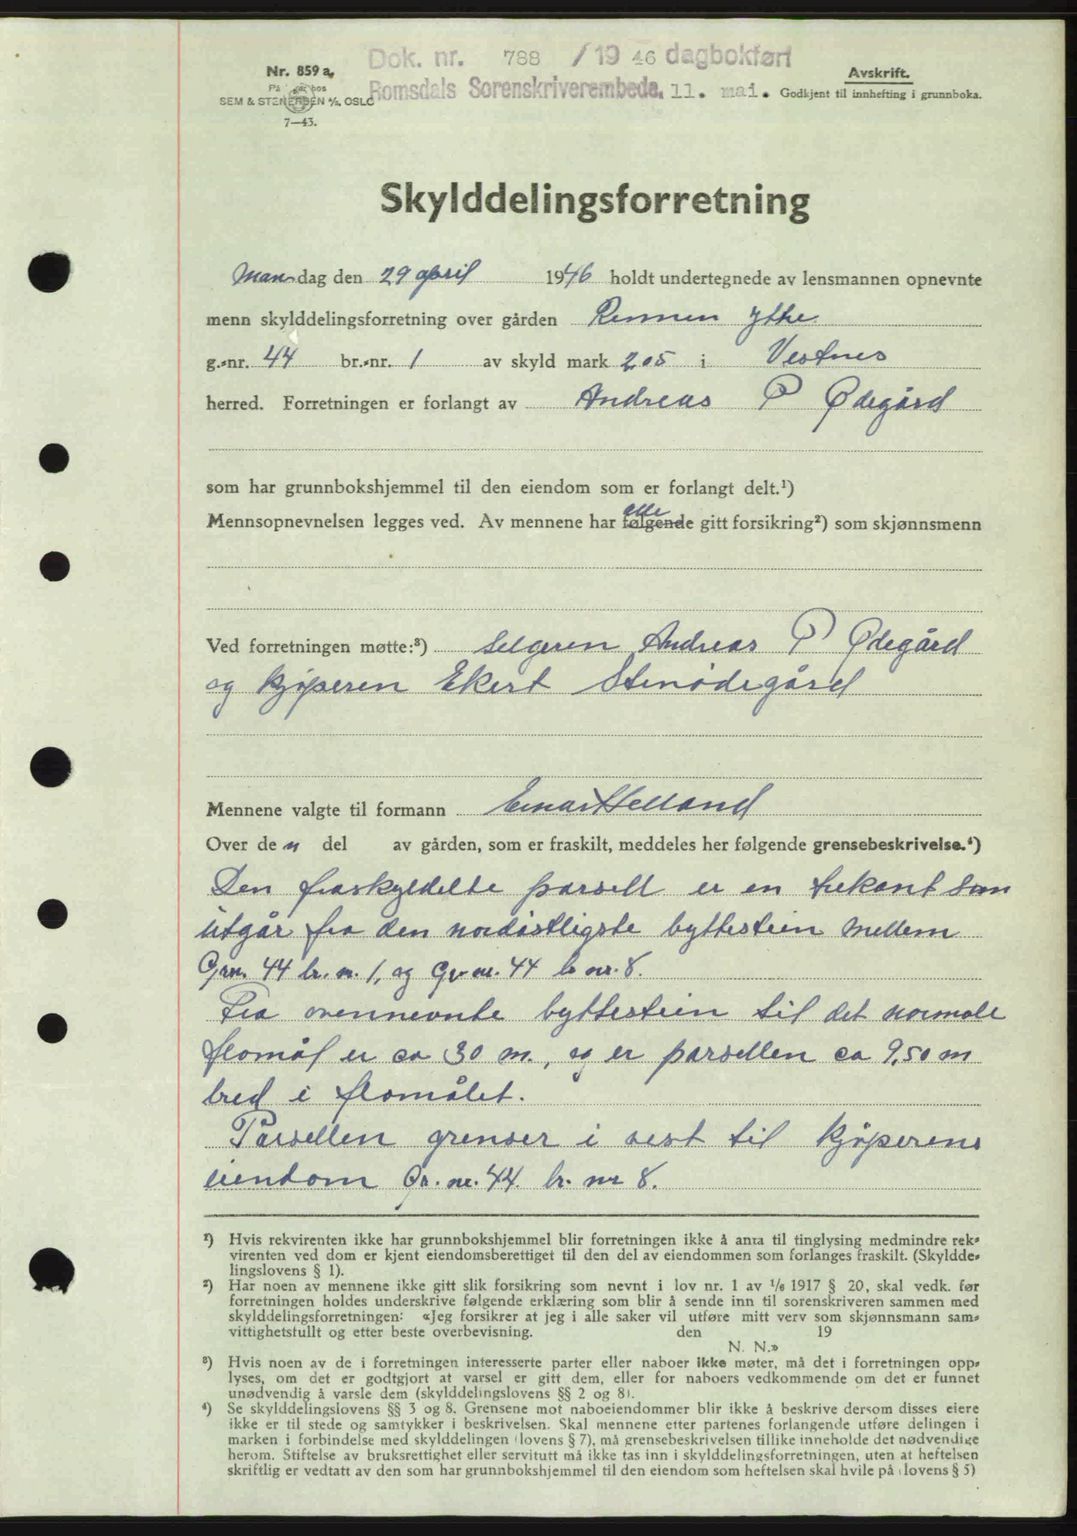 Dok. nr. 788 /1946 dagbokført
Romsdals Sorenskriverembede, 11. mai.
Nr. 859 a.
SEM & STENERSEN A/S, OSLO
7—43.
Avskrift.
Godkjent til innhefting i grunnboka.
Skylddelingsforretning
Mandag den 29 april 1946 holdt undertegnede av lensmannen opnevnte
menn skylddelingsforretning over gården Remmen Ytre
g.-nr. 44 br.-nr. 1 av skyld mark 2.05 i Vestnes
herred. Forretningen er forlangt av Andreas P Ødegård
som har grunnbokshjemmel til den eiendom som er forlangt delt.¹)
alle
Mennsopnevnelsen legges ved. Av mennene har følgende gitt forsikring²) som skjønnsmenn
Ved forretningen møtte:³) Selgeren Andreas P Ødegård
og kjøperen Ekert Stenødegård
Mennene valgte til formann Einar Helland
Over den del av gården, som er fraskilt, meddeles her følgende grensebeskrivelse.⁴)
Den fraskyldelte parsell er en trekant som
utgår fra den nordøstligste byttestein mellem
Grnr. 44 br. n. 1, og Gr nr. 44 br nr. 8.
Fra ovennevnte byttestein til det normale
flomål er ca 30 m., og er parsellen ca 9,50 m
bred i flomålet.
Parsellen grenser i vest til kjøperens
eiendom Gr. nr. 44. br. nr 8.
¹) Hvis rekvirenten ikke har grunnbokshjemmel blir forretningen ikke å anta til tinglysing medmindre rek-
virenten ved dom er kjent eiendomsberettiget til den del av eiendommen som forlanges fraskilt. (Skyldde-
lingslovens § 1).
²) Har noen av mennene ikke gitt slik forsikring som nevnt i lov nr. 1 av 1/6 1917 § 20, skal vedk. før
forretningen holdes underskrive følgende erklæring som blir å sende inn til sorenskriveren sammen med
skylddelingsforretningen: «Jeg forsikrer at jeg i alle saker vil utføre mitt verv som skjønnsmann sam-
vittighetsfullt og etter beste overbevisning. den 19
N. N.»
³) Hvis noen av de i forretningen interesserte parter eller naboer ikke møter, må det i forretningen opp-
lyses, om det er godtgjort at varsel er gitt dem, eller for naboers vedkommende om det er funnet
unødvendig å varsle dem (skylddelingslovens §§ 2 og 8).
⁴) Se skylddelingslovens §§ 3 og 8. Grensene mot naboeiendommer blir ikke å beskrive dersom disses eiere
ikke er til stede og samtykker i beskrivelsen. Skal mennene etter partenes forlangende utføre delingen i
marken i forbindelse med skylddelingen (lovens § 7), må grensebeskrivelsen tillike inneholde det nødvendige
herom. Stiftelse av bruksrettighet eller servitutt må ikke tas inn i skylddelingsforretningen, uten at heftelsen
skriftlig er vedtatt av den som har grunnbokshjemmel til den eiendom som heftelsen skal hvile på (lovens § 5)